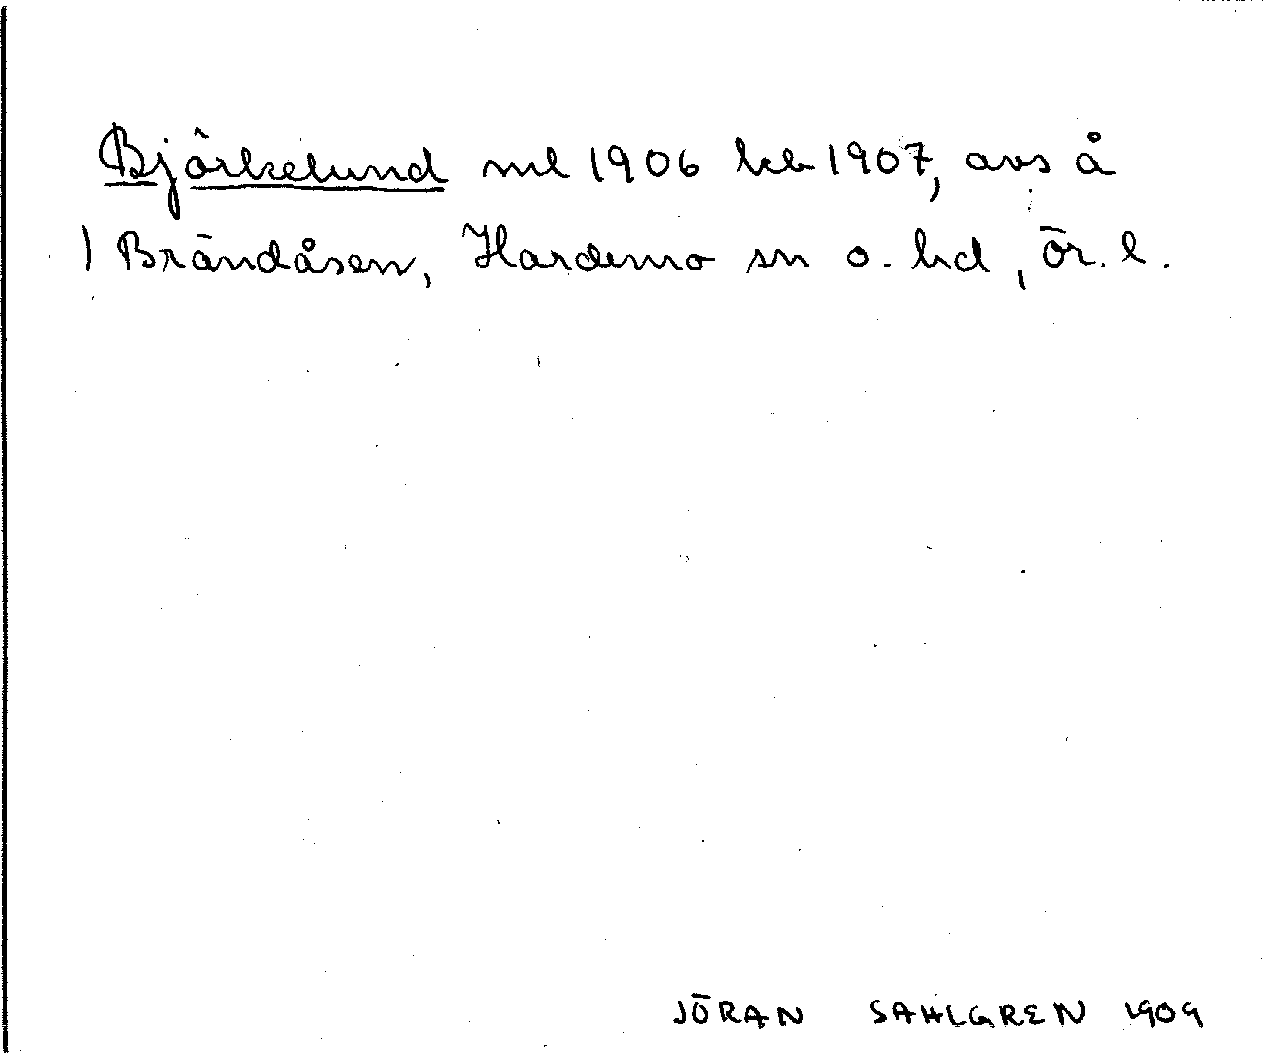 Björkelund ml 1906 kb 1907, avs å
1 Brändåsen, Hardemo sn o. hd, Ör. l.
JÖRAN SAHLGREN 1909